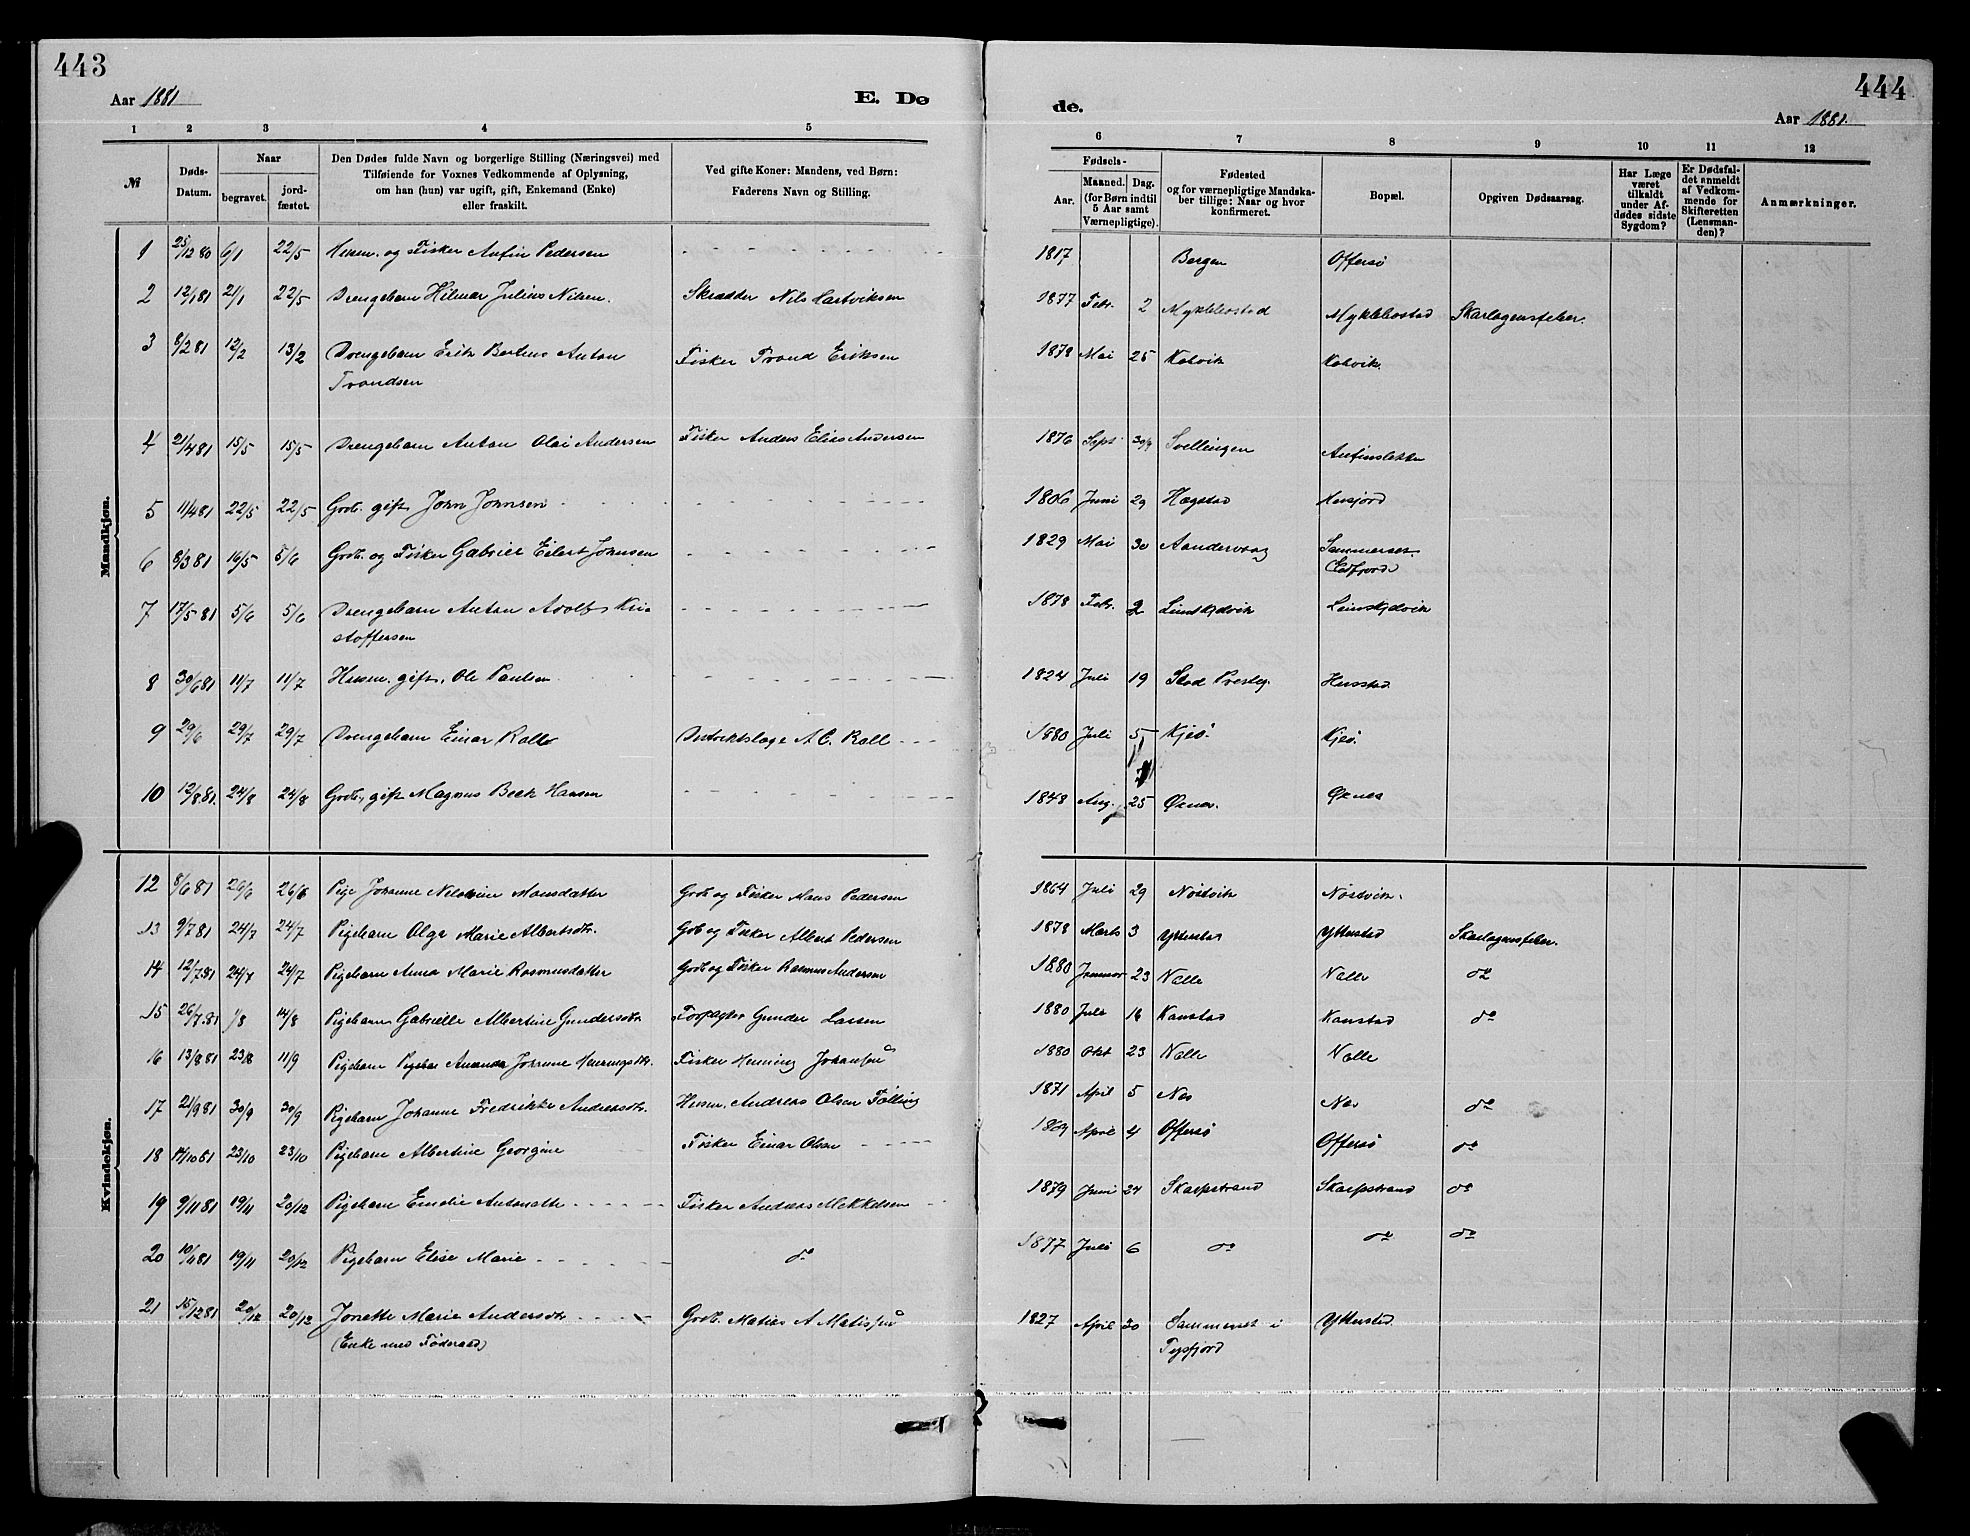 443
Aar 1881
E. Dø
1 2 3 4 5
№
Døds-
Datum.
Naar
begravet.
jord-
fæstet.
Den Dødes fulde Navn og borgerlige Stilling (Næringsvei) med
Tilføiende for Voxnes Vedkommende af Oplysning,
om han (hun) var ugift, gift, Enkemand (Enke)
eller fraskilt.
Ved gifte Koner: Mandens, ved Børn:
Faderens Navn og Stilling.
Mandkjøn.
1 25/12 80 6/1 22/5 Husm. og Fisker Anfin Pedersen
2 12/1 81 21/1 22/5 Drengebarn Hilmar Julius Nilsen. Skrædder Nils Hartviksen
3 8/2 81 12/2 13/2 Drengebarn Erik Berteus Anton Fisker Trond Eriksen
Trondsen
4 21/4 81 15/5 15/5 Drengebarn Anton Olai Andersen Fisker Anders Elias Andersen
5 11/4 81 22/5 22/5 Grdb. gift John Johnsen
6 8/3 81 16/5 5/6 Grdb. og Fisker Gabriel Eilert Johnsen
7 17/5 81 5/6 5/6 Drengebarn Anton Adolf Kri-
stoffersen
8 30/6 81 11/7 11/7 Husm. gift, Ole Paulsen
9 29/6 29/7 29/7 Drengebarn Einar Roll Distriktslæge A. C. Roll
10 12/8 81. 24/8 24/8 Grdb., gift Magnus Beck Hansen
Kvindekjøn.
12 8/6 81 26/6 26/6 Pige Johanne Mansdatter Grdb og Fisker Mans Pedersen
13 9/7 81 24/7 24/7 Pigebarn Olga Marie Albertsdtr. Gdb og Fisker Albert Pedersen
14 12/7 81 24/7 24/7 Pigebarn Anna Marie Rasmusdatter Grdb og Fisker Rasmus Andersen
15 26/7 81 /8 14/8 Pigebarn Gabrielle Albertine Gundersdtr Forpagter Gunder Larsen
16 13/8 81 23/8 11/9 Pigebarn Amanda Johanne Henningsdtr. Fisker Henning Johansen
17 21/9 81 30/9 30/9 Pigebarn Johanne Fredrikke Andreasdtr. Husm. Andreas Olsen Følling
18 14/10 81 23/10 23/10 Pigebarn Albertine Georgine Fisker Einar Olsen
19 9/11 81 19/11 20/12 Pigebarn Emelie Antonette Fisker Andreas Mikkelsen
20 10/11 81 19/11 20/12 Pigebarn Elise Marie do
21 15/12 81 20/12 20/12 Jonette Marie Andersdtr. Grdb. Matias A Matissen
(Enke med Føderaad)
444
de.
Aar 1881.
6 7 8 9 10 11 12
Fødsels-
Aar.
Maaned. Dag.
(for Børn indtil
5 Aar samt
Værnepligtige).
Fødested
og for værnepligtige Mandska-
ber tillige: Naar og hvor
konfirmeret.
Bopæl.
Opgiven Dødsaarsag.
Har Læge
været
tilkaldt
under Af-
dødes sidste
Sygdom?
Er Dødsfal-
det anmeldt
af Vedkom-
mende for
Skifteretten
(Lensman-
den)?
Anmærkninger.
1817 Bergen Offersø
1877 Febr. 2 Myklebostad Myklebostad Skarlagensfeber.
1878 Mai 25 Kobvik Kobvik.
1876 Sept 30/9 Svellingen Anfinslette
1806 Juni 29 Hægstad
1829 Mai 30 Aandervaag Sommerset
(Eidfjord)
1878 Febr. 2
1824 Juli 19 Stod Præstg. Husstad
1880 Juli 5 Kjeø. Kjeø.
1848 Aug. 25 Øknes. Øknes
1864 Juli 29 Nøstvik Nøstvik.
1878 Marts 3 Ytterstad Ytterstad Skarlagensfeber.
1880 Januar 23 Nalle Nalle do
1880 Juli Kanstad Kanstad do
1880 Okt 23 Nalle Nalle
1871 April 5 Nes Nes do
1869 April 4 Offersø Offersø do
1879 Juni 24 Skarpstrand Skarpstrand do
1877 Juli 6 do do do
1827 April 30 Sommerset i Ytterstad.
Tysfjord